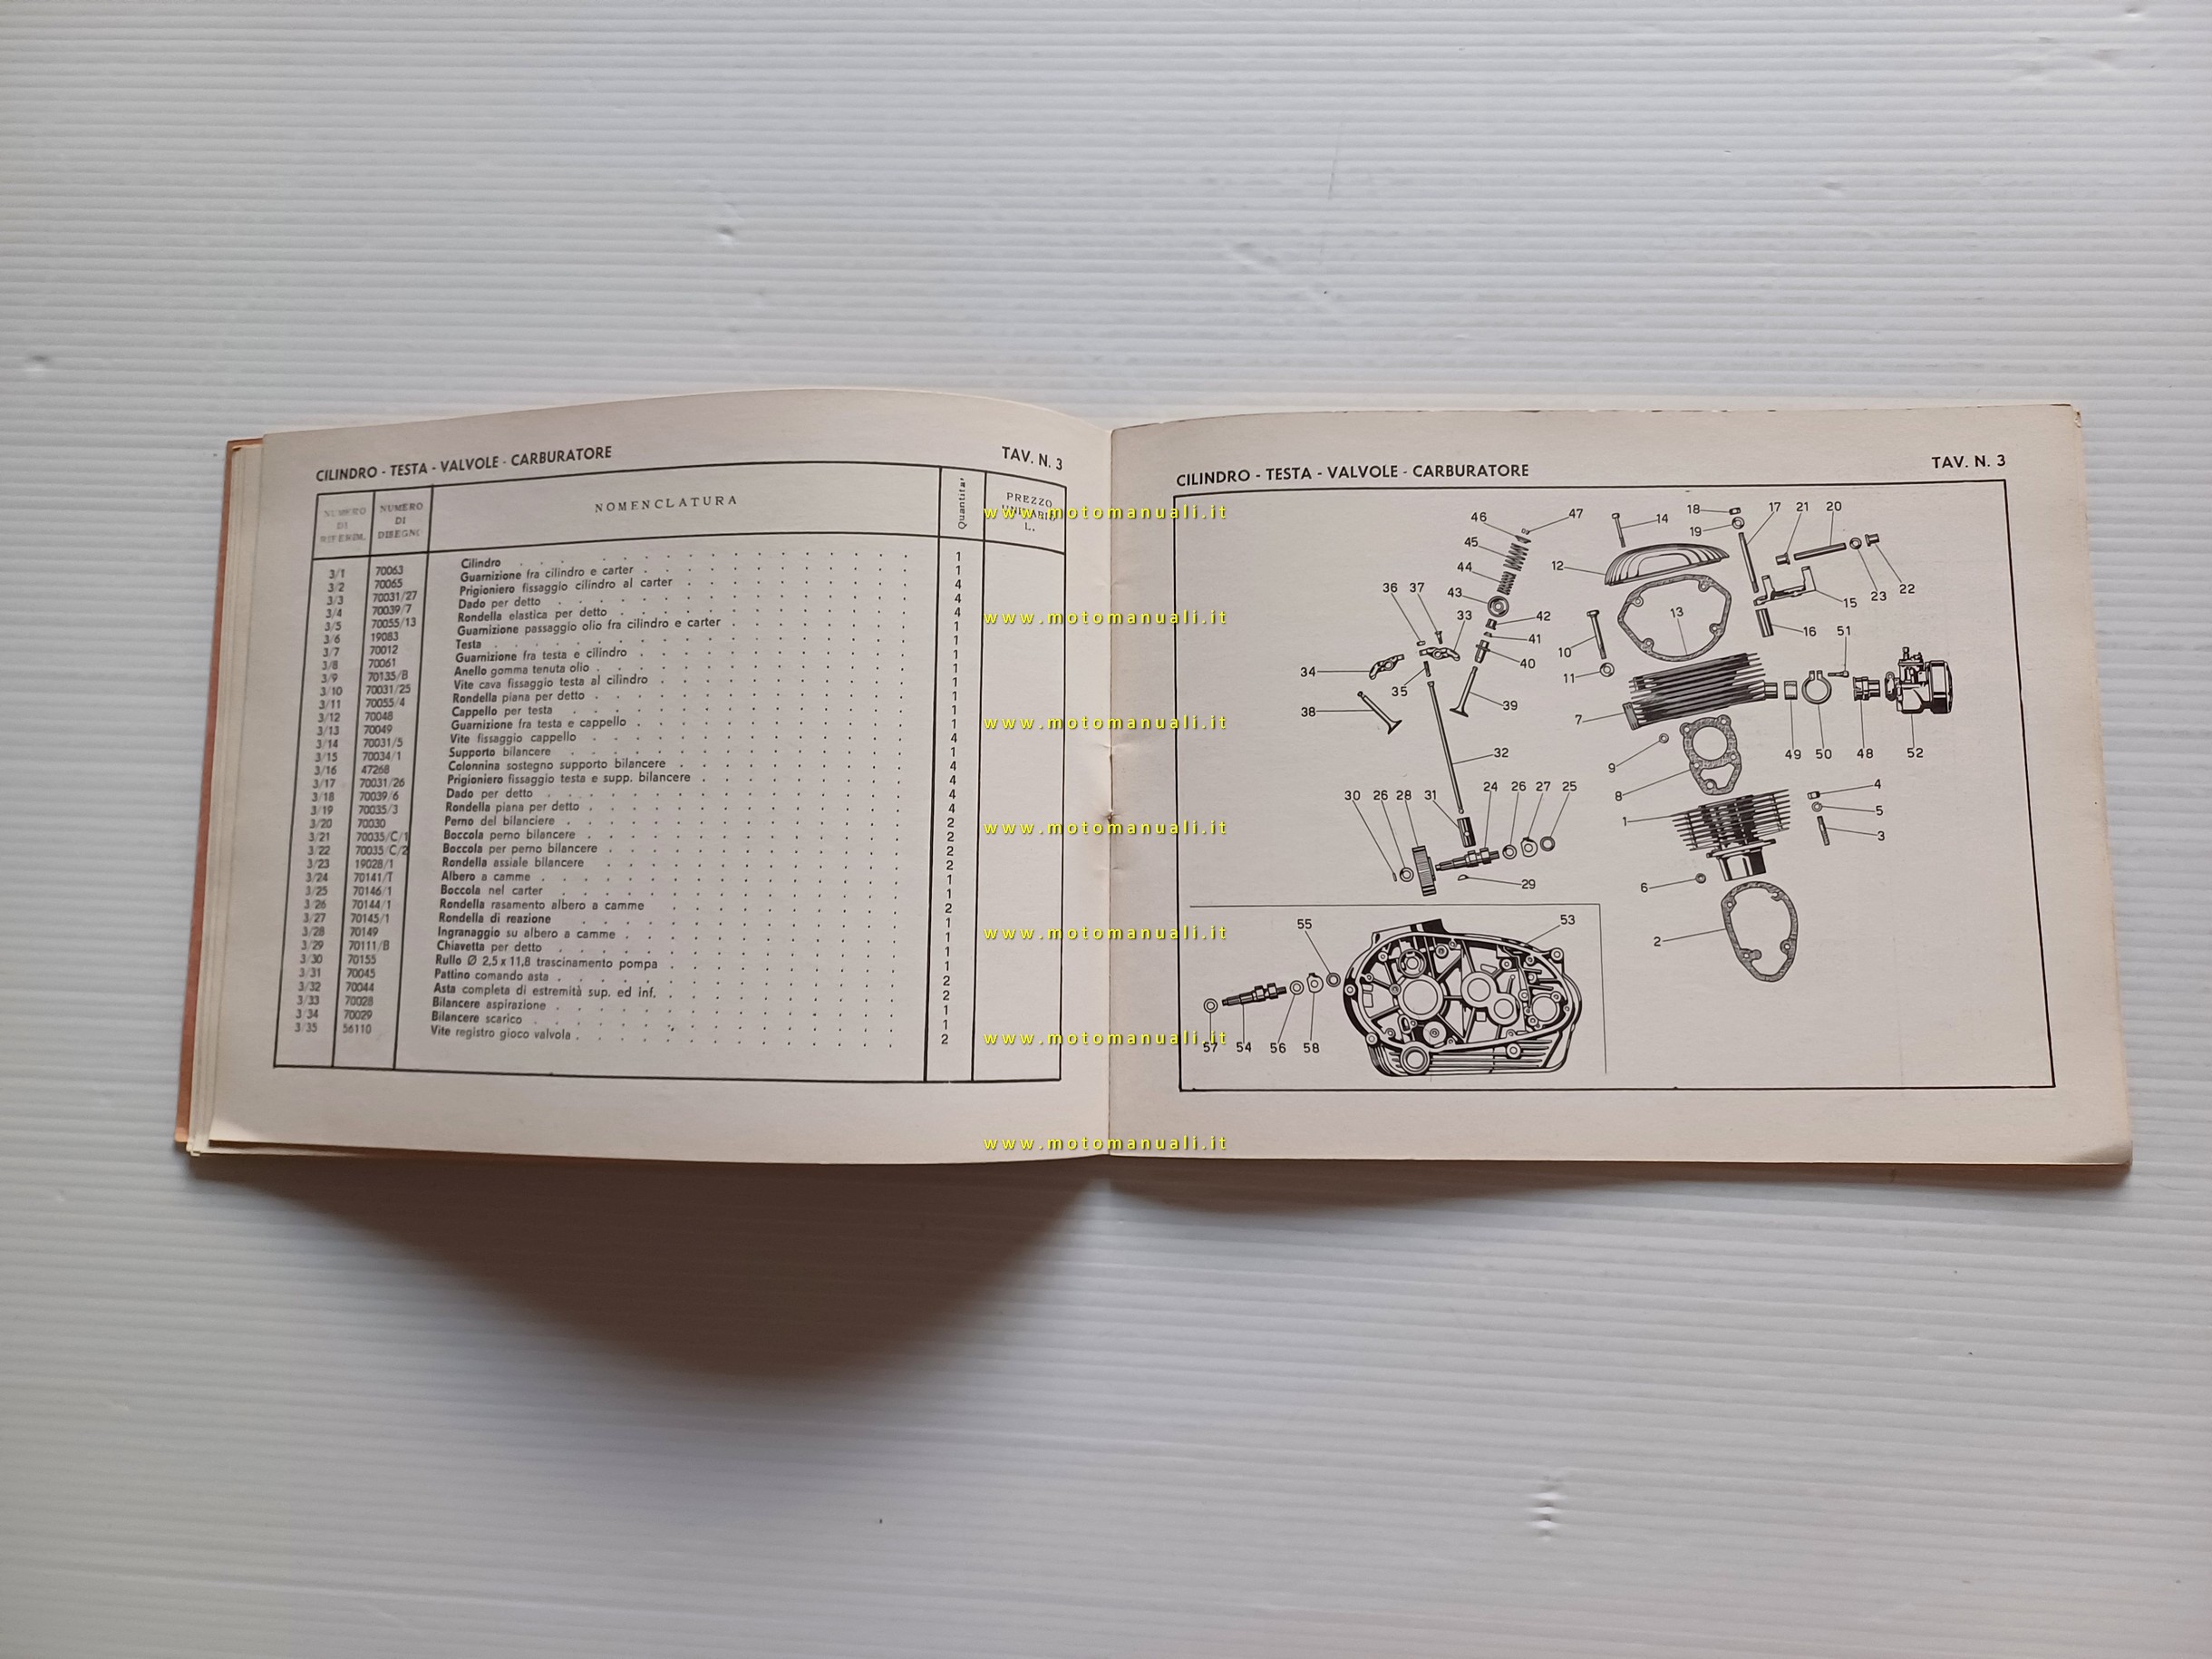 CILINDRO - TESTA - VALVOLE - CARBURATORE TAV. N. 3
NUMERO DI RIFERIM. NUMERO DI DISEGNO NOMENCLATURA Quantita' PREZZO UNITARIO L.
3/1 70063 Cilindro 1
3/2 70065 Guarnizione fra cilindro e carter 1
3/3 70031/27 Prigioniero fissaggio cilindro al carter 4
3/4 70039/7 Dado per detto 4
3/5 70055/13 Rondella elastica per detto 4
3/6 19083 Guarnizione passaggio olio fra cilindro e carter 1
3/7 70012 Testa 1
3/8 70061 Guarnizione fra testa e cilindro 1
3/9 70135/B Anello gomma tenuta olio 1
3/10 70031/25 Vite cava fissaggio testa al cilindro 1
3/11 70055/4 Rondella piana per detto 1
3/12 70048 Cappello per testa 1
3/13 70049 Guarnizione fra testa e cappello 1
3/14 70031/5 Vite fissaggio cappello 4
3/15 70034/1 Supporto bilancere 1
3/16 47268 Colonnina sostegno supporto bilancere 4
3/17 70031/26 Prigioniero fissaggio testa e supp. bilancere 4
3/18 70039/6 Dado per detto 4
3/19 70035/3 Rondella piana per detto 4
3/20 70030 Perno del bilanciere 2
3/21 70035/C/1 Boccola perno bilancere 2
3/22 70035/C/2 Boccola per perno bilancere 2
3/23 19028/1 Rondella assiale bilancere 2
3/24 70141/T Albero a camme 1
3/25 70146/1 Boccola nel carter 1
3/26 70144/1 Rondella rasamento albero a camme 2
3/27 70145/1 Rondella di reazione 1
3/28 70149 Ingranaggio su albero a camme 1
3/29 70111/B Chiavetta per detto 1
3/30 70155 Rullo Ø 2,5 x 11,8 trascinamento pompa 1
3/31 70045 Pattino comando asta 2
3/32 70044 Asta completa di estremità sup. ed inf. 2
3/33 70028 Bilancere aspirazione 1
3/34 70029 Bilancere scarico 1
3/35 56110 Vite registro gioco valvola 2
www.motomanuali.it
www.motomanuali.it
www.motomanuali.it
www.motomanuali.it
www.motomanuali.it
www.motomanuali.it
www.motomanuali.it
CILINDRO - TESTA - VALVOLE - CARBURATORE TAV. N. 3
46 47 14 18 17 21 20
45 19
44 12 23 22
36 37 43 33 42 13 15
41 16 51
34 40 10
35 11
38 39 7
32 9 49 50 48 52
8 4
30 26 28 31 24 26 27 25 1 5
3
29 6
55 53 2
57 54 56 58